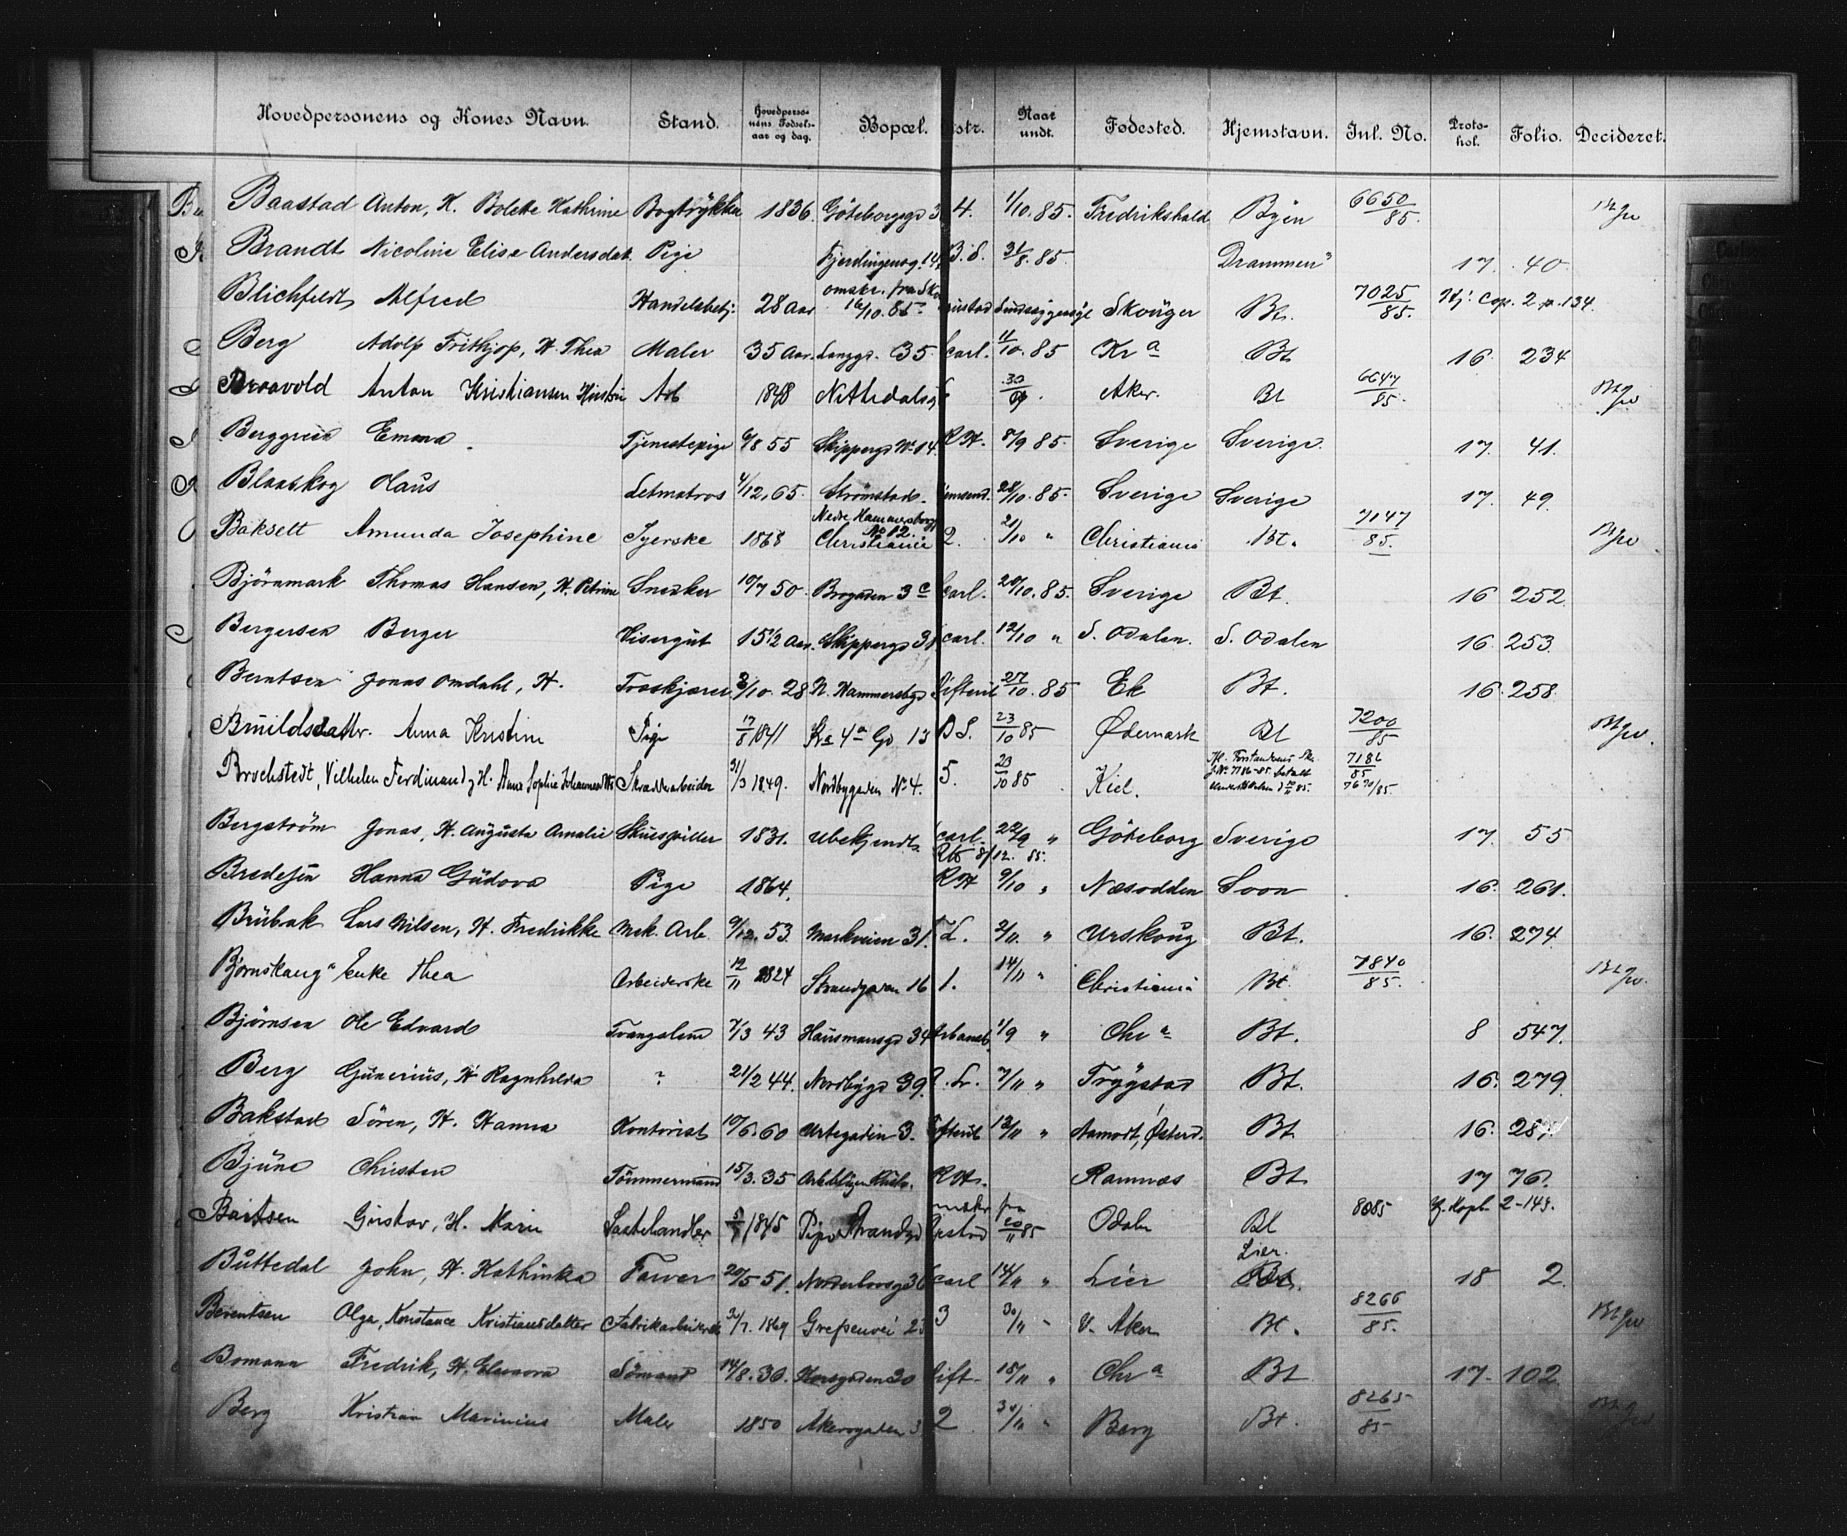 Hovedpersonens og Kones Navn. Stand. Hovedperso-nens Fødsels-aar og dag. Bopæl. Naar undt. Fødested. Hjemstavn. Jnl. No. Proto-kol. Folio. Decideret.
Baastad Anton, H. Bolette Kathrine Bogtrykker 1836 Göteborggd 3 4. 1/10.85. Fredrikshald Byen 6650/85.
Brandt Nicoline Elise Andersdat. Pige Fjerdingensg. 14 B.S. 31/8.85. Drammen 17. 40.
Blichfeldt Alfred Handelsbetj. 28 Aar omskr. fra 16/10.85 Skouger Bt. 7025/85. Cop. 2. p. 134.
Berg Adolf Frithjop, H. Thea Maler 35 Aar. Langgd. 35 Carl. 11/10.85 Kr a Bt 16. 234
Braavold Anton Kristiansen Arb 1848 Nittedalsg 30/9. Aker. Bt 6647/85.
Berggreen Emma Tjenestepige 6/8 55 Skippergd No 14. R H. 8/9 85. Sverige Sverige. 17. 41.
Blaaskog Claus Letmatros 4/12.65. Strömstad 28/10.85. Sverige Sverige 17. 49.
Baksett Amunda Josephine Syerske 1868 Nedre Hammersborg No 12. Christiania 2. 21/10 " Christiania Bt. 7147/85.
Bjørnmark Thomas Hansen, H. Petrine Snedker 10/7 50. Brogaden 3 c Carl. 20/10.85. Sverige Bt. 16 252.
Bergersen Berger Visergut 15 1/2 Aar. Skippergd 31 Carl. 12/10 " S. Odalen. S. Odalen 16. 253.
Berntsen Jonas Omdahl, H. 3/10. 28 N. Hammersbgd 27/10.85 Ek Bt. 16. 258.
Bruildsdatter. Anna Kristine Pige 17/8 1841 Kra 4a Gd 13 D S. 23/10 85 Ødemark Bt 7200/85
Brochstedt, Vilhelm Ferdinand, H. Anna Sophie Skrædderarbeider 31/3 1849. Nordbygaden No 4. 5. 23/10 85 Kiel. 7186/85
Bergström Jonas, H. Augusta Amalie Skuespiller 1831. Ubekjendt. Carl. 22/9 " Göteborg Sverige 17. 55
8/12. 85.
Bredesen Hanna Gudova Pige 1864. R H 9/10 " Næsodden Soon 16. 261.
Brubak Lars Nilsen, H. Fredrikke Mek. Arb. 9/12. 53. Markveien 31. F.L. 2/11 " Urskoug Bt. 16. 274.
Bjørnskaug Enke Thea Arbeiderske 12/11 1824 Strandgaden 16 1. 14/11 " Christiania Bt. 7840/85.
Bjørnsen Ole Edvard Tvangslem 7/3 43 Hausmansgd 34 Arbanst. 1/9 " Chr a Bt. 8 547.
Berg Gunerius, H Ragnhilda ? 21/2 44. Nordbygd 39. 7/11 " Trygstad Bt. 16. 279.
Bakstad Sören, H. Hanna Kontorist 10/6.60 Urtegaden 3. 12/11 " Aamodt, Østerd. Bt.
Bjune Christen Tömmermand 15/3.35 R H. Ramnæs Bt. 17 76.
Gustav, H. Marie 1845 Piperv Strandgd 20/11 85 Odalen Bt 8085 Kopb. 2-149.
Buttedal John, H. Kathinka Farver 20/5 51. Carl 14/11 " Lier Lier. Bt. 18 2.
Berentsen Olga, Konstance Kristiansdatter Fabrikarbeider 1869 Grefsenvei 25 3 30/11 " V. Aker Bt. 8266/85.
Bomann Fredrik, H. Eleonora Sömand 14/8.30. Korsgaden 20 Gift. 18/11 " Chr a Bt 17. 102
Berg Kristian Marinius Maler 1850 Akersgaden 3 2 30/11 " Berg Bt. 8265/85